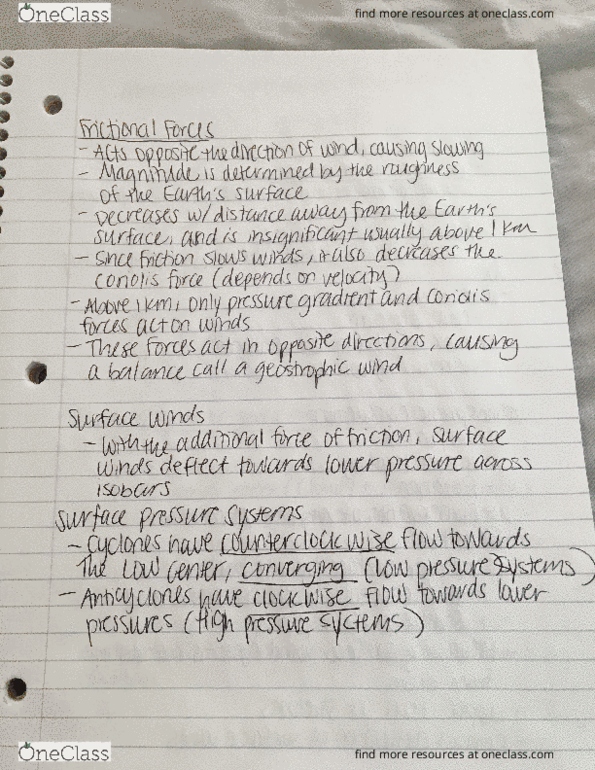 OneClass
find more resources at oneclass.com
Frictional Forces
- Acts opposite the direction of wind, causing slowing
- Magnitude is determined by the roughness
of the Earth's surface
- Decreases w/ distance away from the Earth's
surface, and is insignificant usually above 1 km
- Since friction slows winds, it also decreases the
coriolis force (depends on velocity)
- Above 1 km, only pressure gradient and coriolis
forces act on winds
- These forces act in opposite directions, causing
a balance call a geostrophic wind
Surface Winds
- With the additional force of friction, surface
winds deflect towards lower pressure across
isobars
Surface Pressure Systems
- Cyclones have counterclockwise flow towards
the low center, converging (low pressure systems)
- Anticyclones have clockwise flow towards lower
pressures (High pressure systems)
OneClass
find more resources at oneclass.com